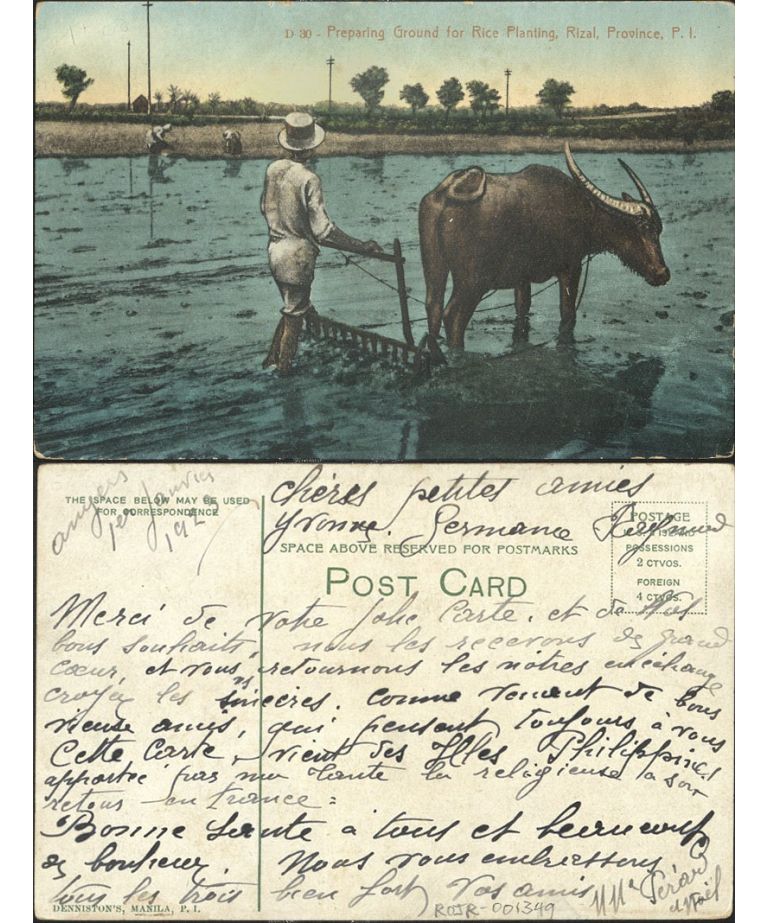 D 30 - Preparing Ground for Rice Planting, Rizal, Province, P. I.
THE SPACE BELOW MAY BE USED
FOR CORRESPONDENCE
angers
1er janvier
192
chères petites amies
Yvonne. Germance Reymond
SPACE ABOVE RESERVED FOR POSTMARKS
POST CARD
POSTAGE
POSSESSIONS
2 CTVOS.
FOREIGN
4 CTVOS.
Merci de votre jolie Carte. et de Vos
bons souhaits, nous les recevons de grand
cœur, et vous retournons les nôtres en échange
croyez les sincères. comme venant de bons
vieux amis, qui pensent toujours à vous
Cette Carte, vient des Illes Philippines
apportée par ma tante la religieuse a son
retour en france =
Bonne Sante à tous et beaucoup
de bonheur. Nous vous embrassons
tous les trois bien fort Vos amis
DENNISTON'S, MANILA, P. I.
ROJR-001349